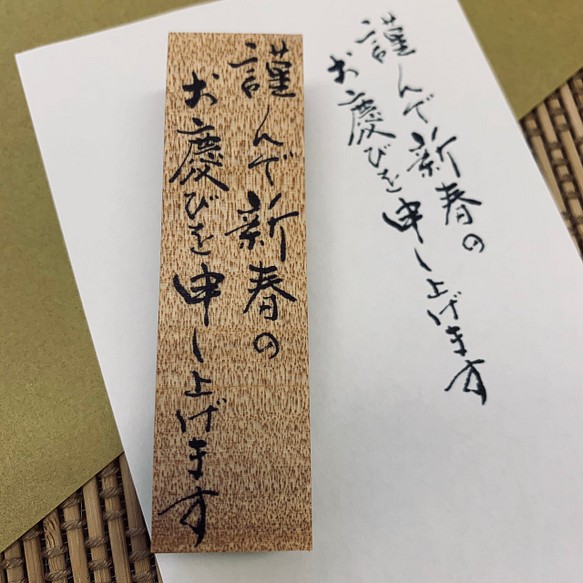 謹んで新春の
お慶びを申し上げます
謹んで新春の
お慶びを申し上げます